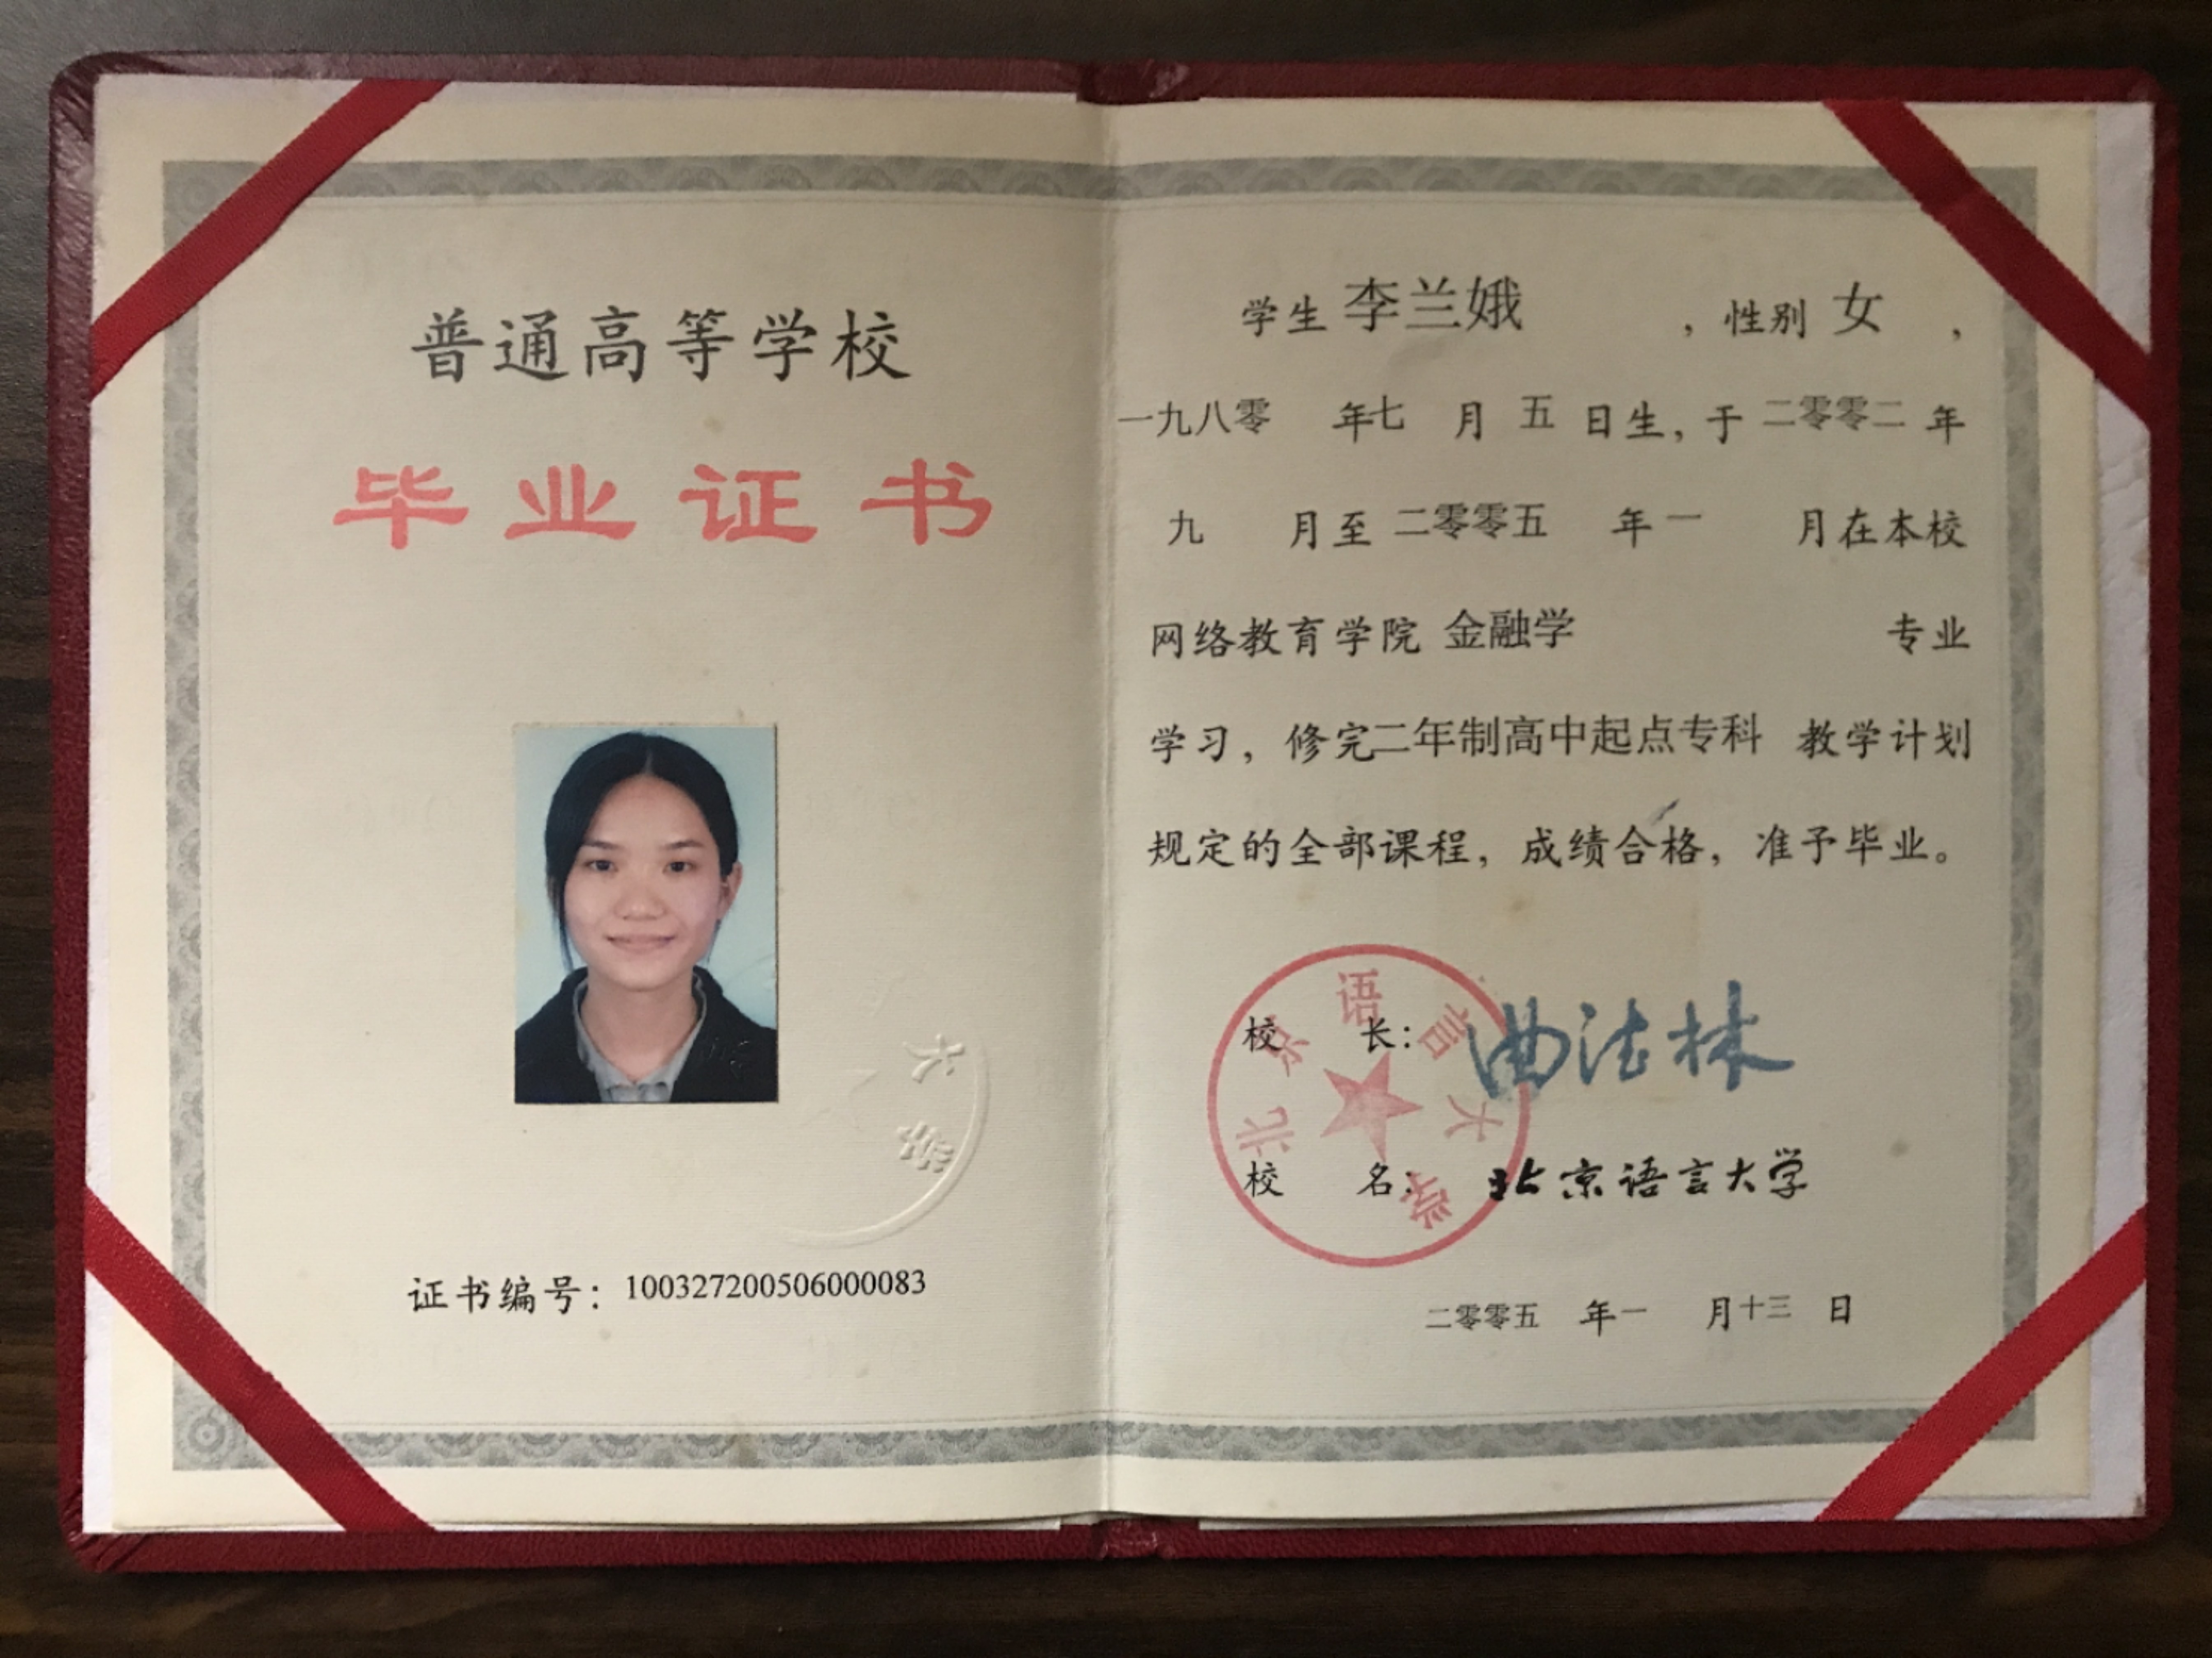 普通高等学校
毕业证书
大学
证书编号：100327200506000083
学生 李兰娥 ，性别 女 ，
一九八零 年七 月 五 日生，于 二零零二 年
九 月至 二零零五 年一 月在本校
网络教育学院 金融学 专业
学习，修完二年制高中起点专科 教学计划
规定的全部课程，成绩合格，准予毕业。
北京语言大学
校 长：曲德林
校 名：北京语言大学
二零零五 年一 月十三 日